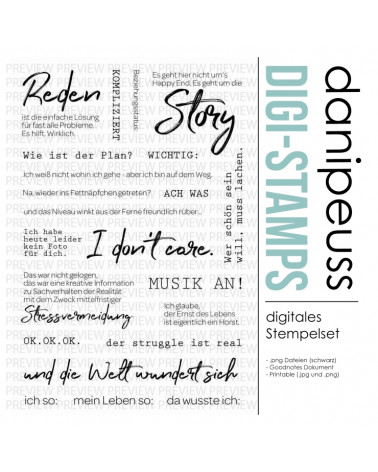 PREVIEW PREVIEW PREVIEW PREVIEW PREVIEW
Reden
ist die einfache Lösung
für fast alle Probleme.
Es hilft. Wirklich.
KOMPLIZIERT
Beziehungsstatus
Es geht hier nicht um's
Happy End. Es geht um die
Story
Wie ist der Plan?
WICHTIG:
Ich weiß nicht wohin ich gehe - aber ich bin auf dem Weg.
Na, wieder ins Fettnäpfchen getreten?
ACH WAS
und das Niveau winkt aus der Ferne freundlich rüber...
Wer schön sein
will, muss lachen.
Ich habe
heute leider
kein Foto
für dich.
I don't care.
Das war nicht gelogen,
das war eine kreative Information
zu Sachverhalten der Realität
mit dem Zweck mittelfristiger
Stressvermeidung
MUSIK AN!
Ich glaube,
der Ernst des Lebens
ist eigentlich ein Horst.
OK.OK.OK.
der struggle ist real
und die Welt wundert sich
ich so:
mein Leben so:
da wusste ich:
danipeuss
DIGI-STAMPS
digitales
Stempelset
- .png Dateien (schwarz)
- Goodnotes Dokument
- Printable (.jpg und .png)